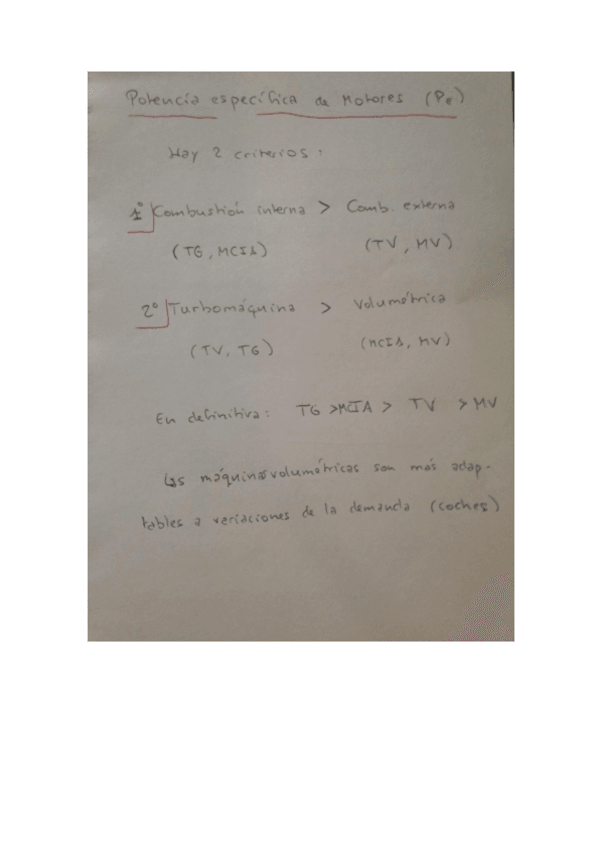 Potencia específica de Motores (Pe)
Hay 2 criterios:
1º Combustión interna > Comb. externa
(TG, MCIA) (TV, MV)
2º Turbomáquina > Volumétrica
(TV, TG) (MCIA, MV)
En definitiva: TG > MCIA > TV > MV
Las máquinas volumétricas son más adap-
tables a variaciones de la demanda (coches)